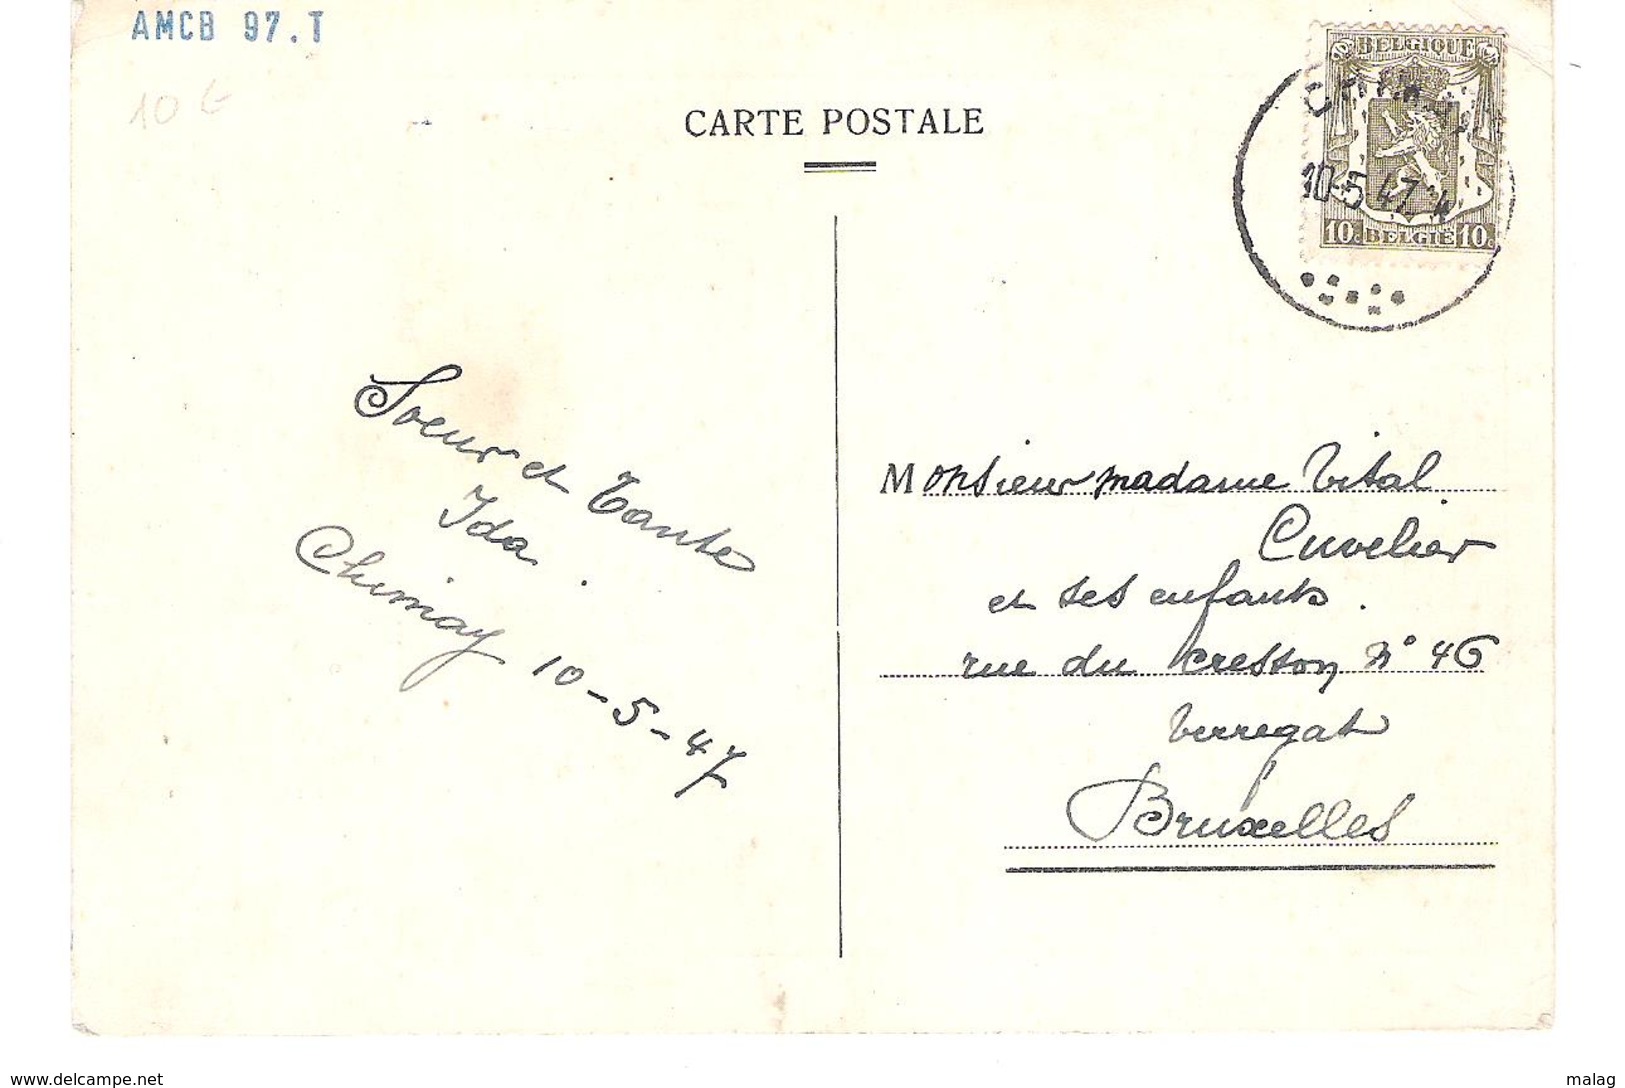 AMCB 97.T
10 €
CARTE POSTALE
BELGIQUE
10-5 47
10c BELGIË 10c
Soeur et Tante
Ida.
Chimay 10-5-47
Monsieur madame Vital
Cuvelier
et ses enfants.
rue du cresson N° 46
Verregat
Bruxelles
www.delcampe.net
malag